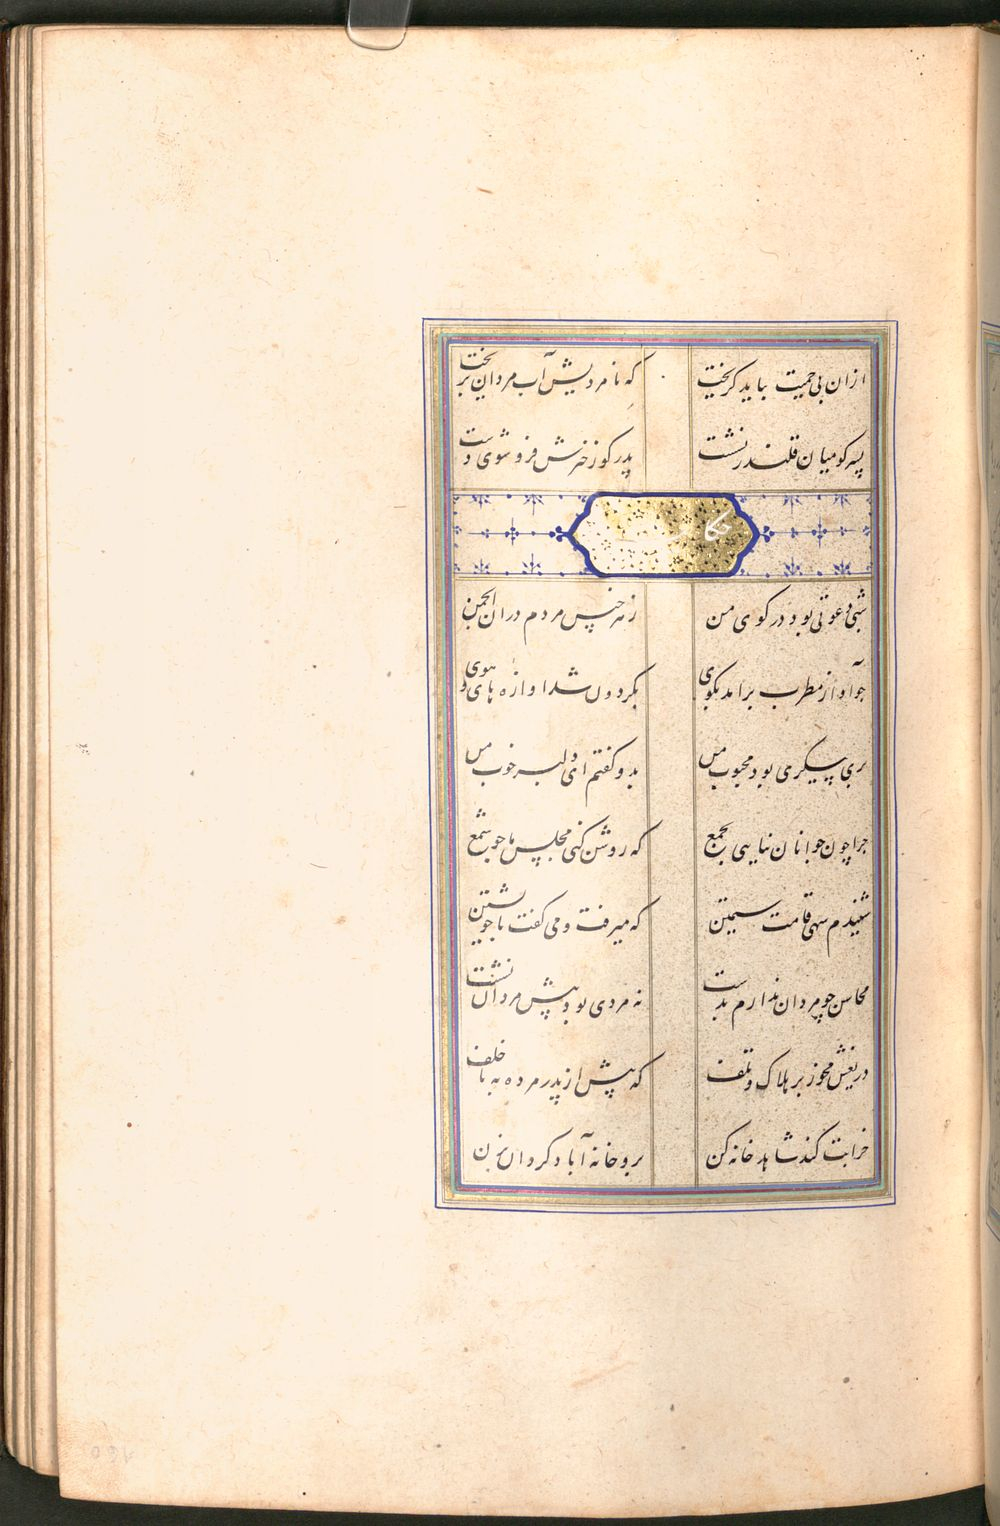 ازان بی حمیت بباید گریخت که نامردیش آب مردان بریخت
پسر کو میان قلندر نشست پدر گو ز خیرش فروشوی دست
حکایت
شبی دعوتی بود در کوی من ز هر جنس مردم دران انجمن
چو آواز مطرب برامد بکوی بگردون شد اوازه های و هوی
پری پیکری بود محبوب من بدو گفتم ای دلبر خوب من
چرا چون جوانان نیایی بجمع که روشن کنی مجلس ما چو شمع
شنیدم سهی قامت سیمتن که میرفت و می گفت با خویشتن
محاسن چو مردان ندارم بدست نه مردی بود پیش مردان نشست
دریغش مخور بر هلاک و تلف که پیش از پدر مرده به ناخلف
خرابت کند شاهد خانه کن برو خانه آباد گردان بزن